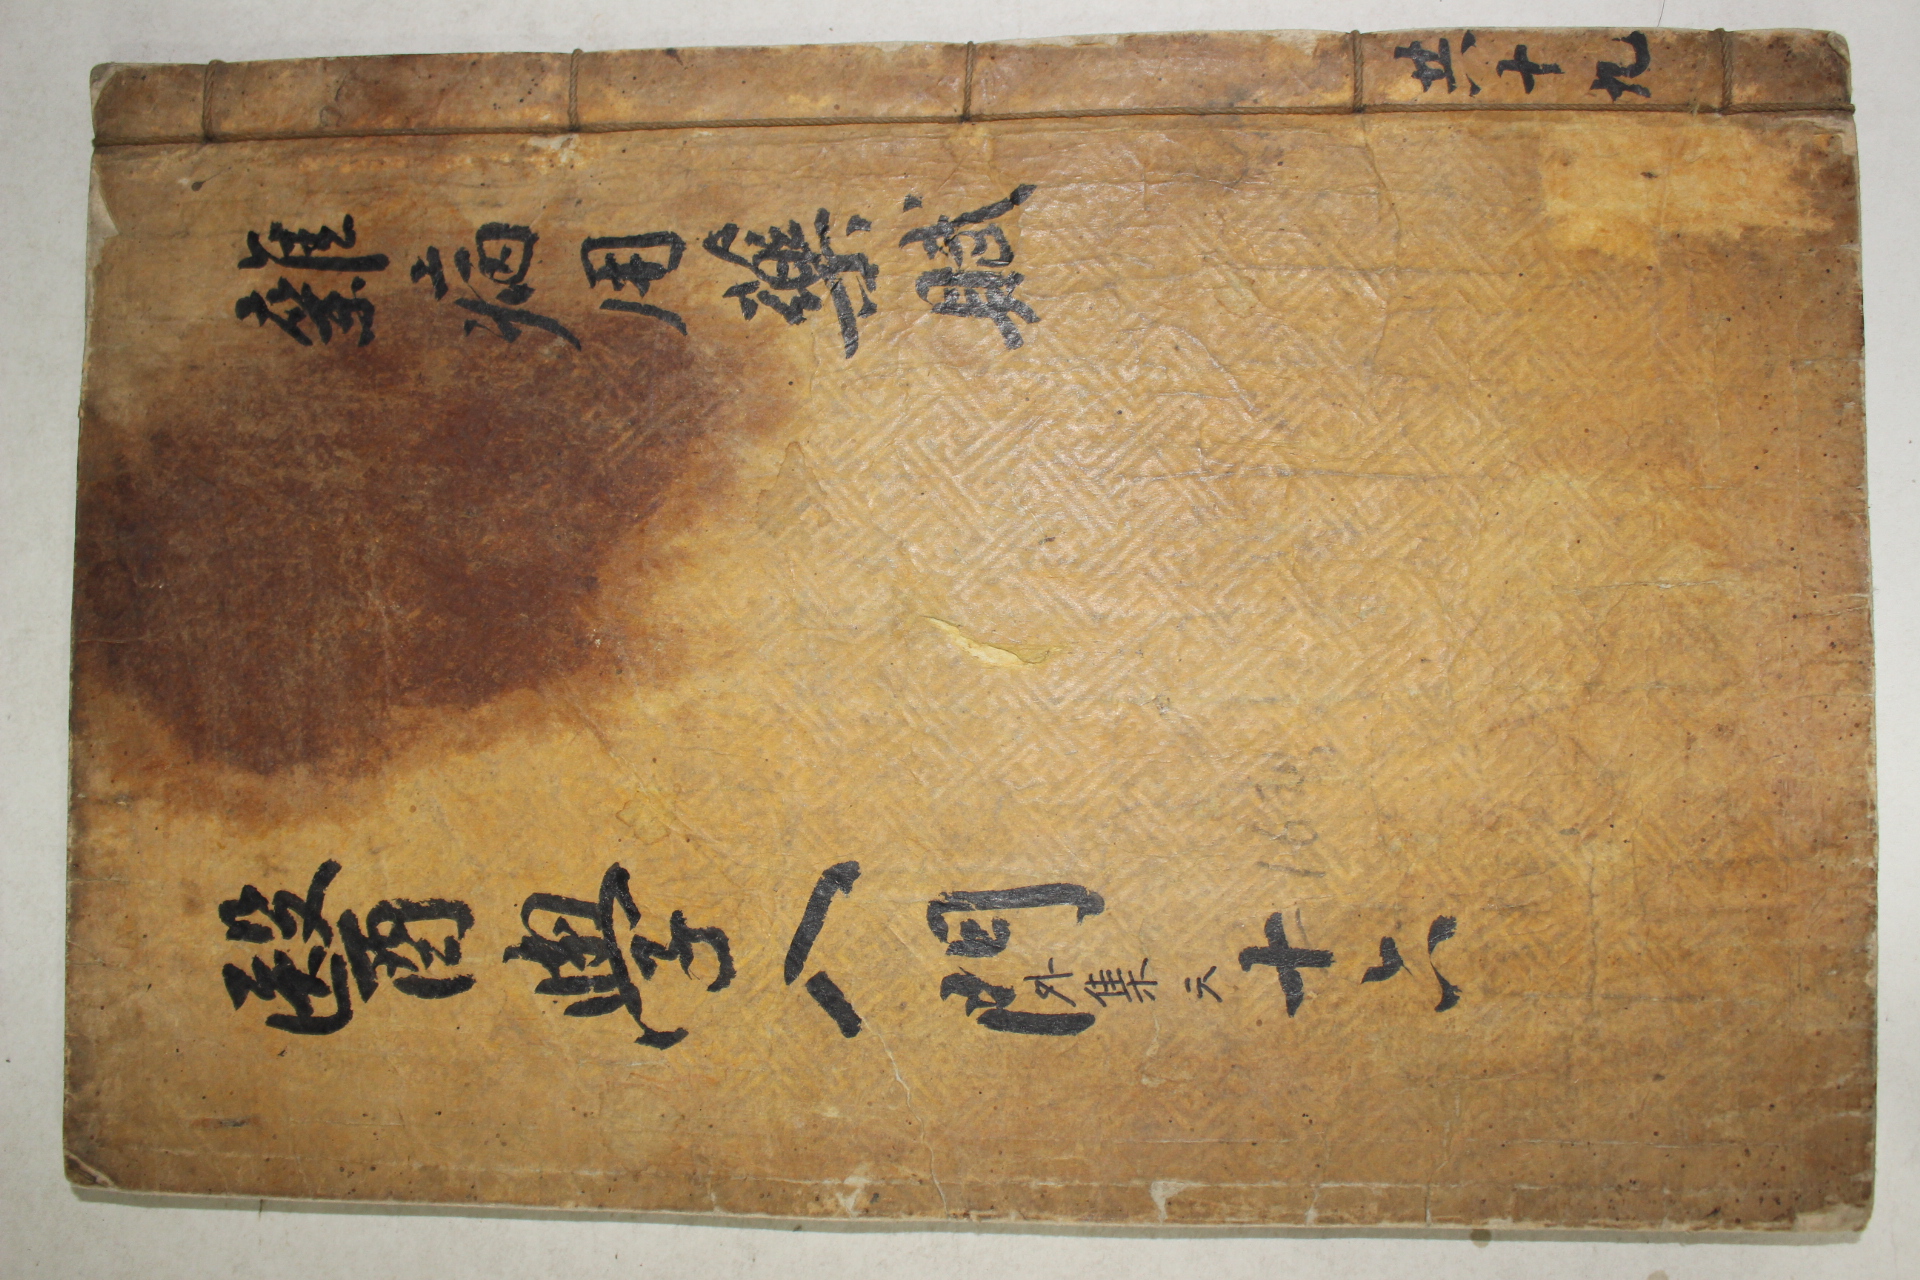 雜病用藥賦
醫學入門 外集 六 十六
共十九